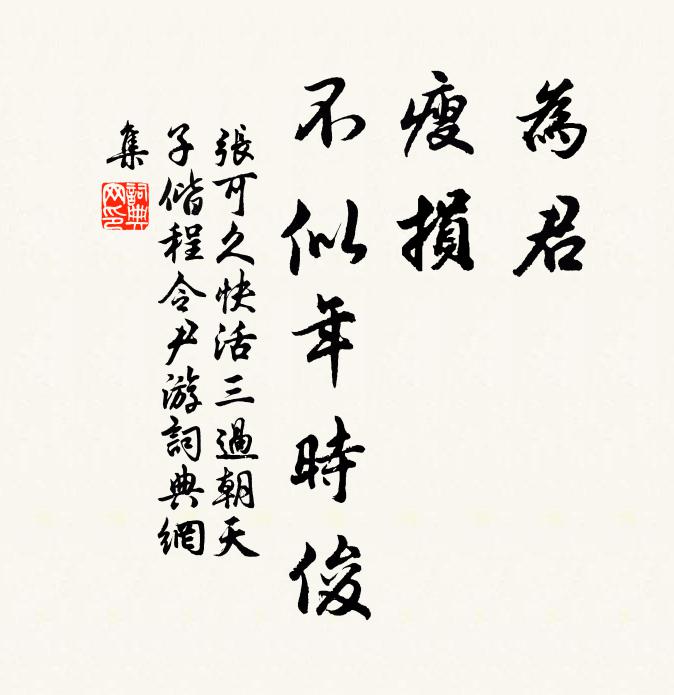 為君
瘦損
不似年時俊
張可久快活三過朝天
子偕程令尹游詞典網
集
詞典网印